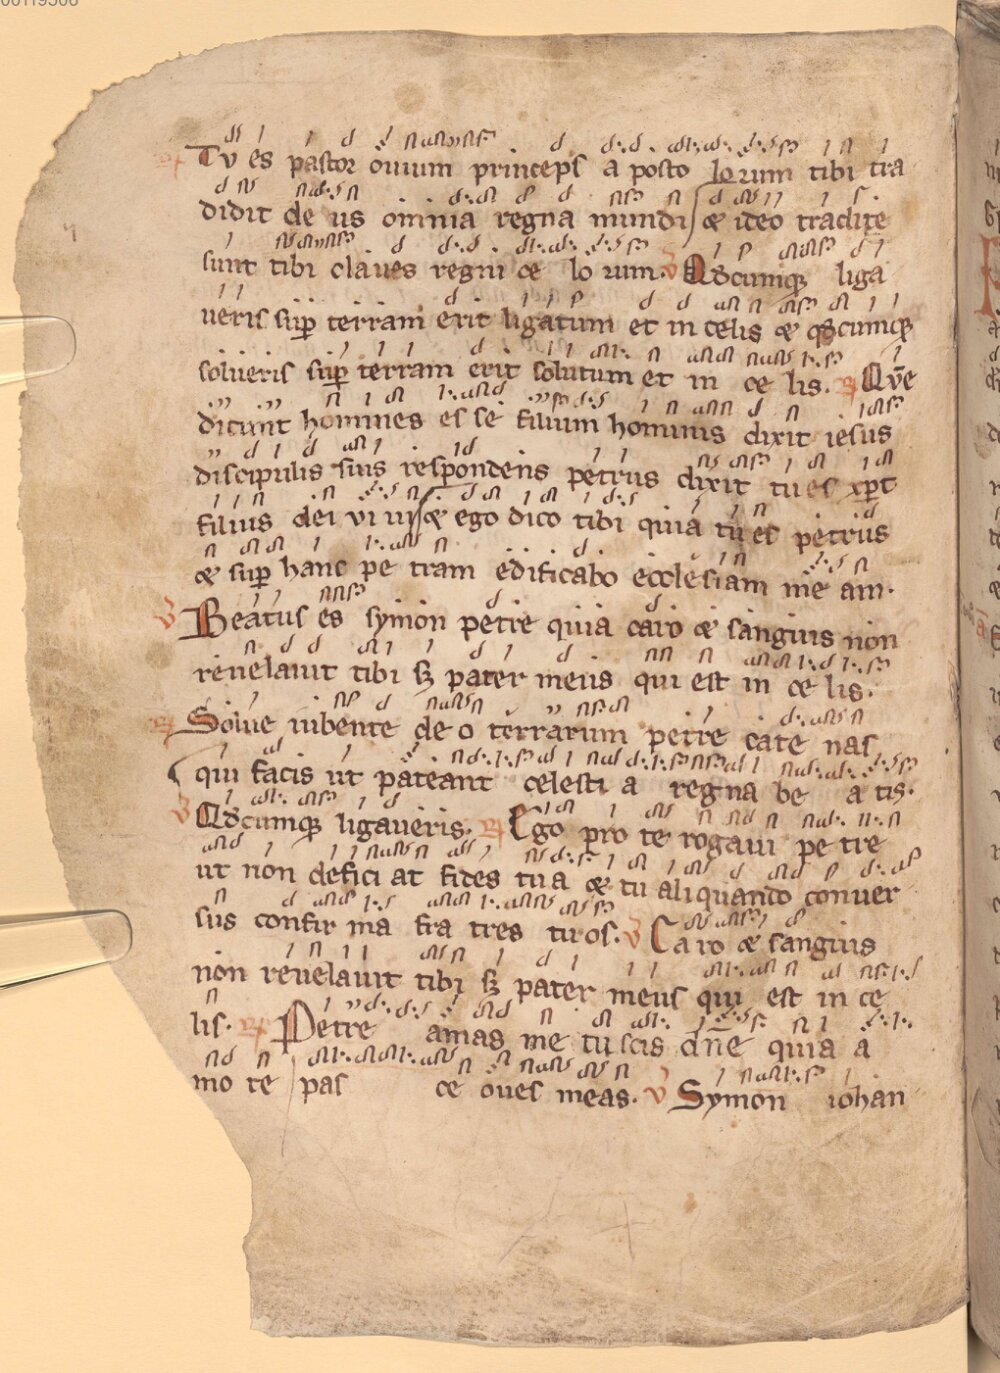 ℟ Tv es pastor ouium princeps a posto lorum tibi tra
didit de us omnia regna mundi / & ideo tradite
sunt tibi claues regni ce lo rum. ℣ Qdcumq; liga
ueris sup terram erit ligatum et in celis & qdcumq;
solueris sup terram erit solutum et in ce lis. ℟ Qve
dicunt homines es se filium hominis dixit iesus
discipulis suis respondens petrus dixit tu es xpc
filius dei vi ui / & ego dico tibi quia tu es petrus
& sup hanc pe tram edificabo ecclesiam me am.
℣ Beatus es symon petre quia caro & sanguis non
reuelauit tibi sꝫ pater meus qui est in ce lis.
℟ Solue iubente de o terrarum petre cate nas
qui facis ut pateant celesti a regna be a tis.
℣ Qdcumq; ligaueris. ℟ Ego pro te rogaui pe tre
ut non defici at fides tu a & tu aliquando conuer
sus confir ma fra tres tu os. ℣ Ca ro & sanguis
non reuelauit tibi sꝫ pater meus qui est in ce
lis. ℟ Petre amas me tu scis dn̄e quia a
mo te pas ce oues meas. ℣ Symon iohan